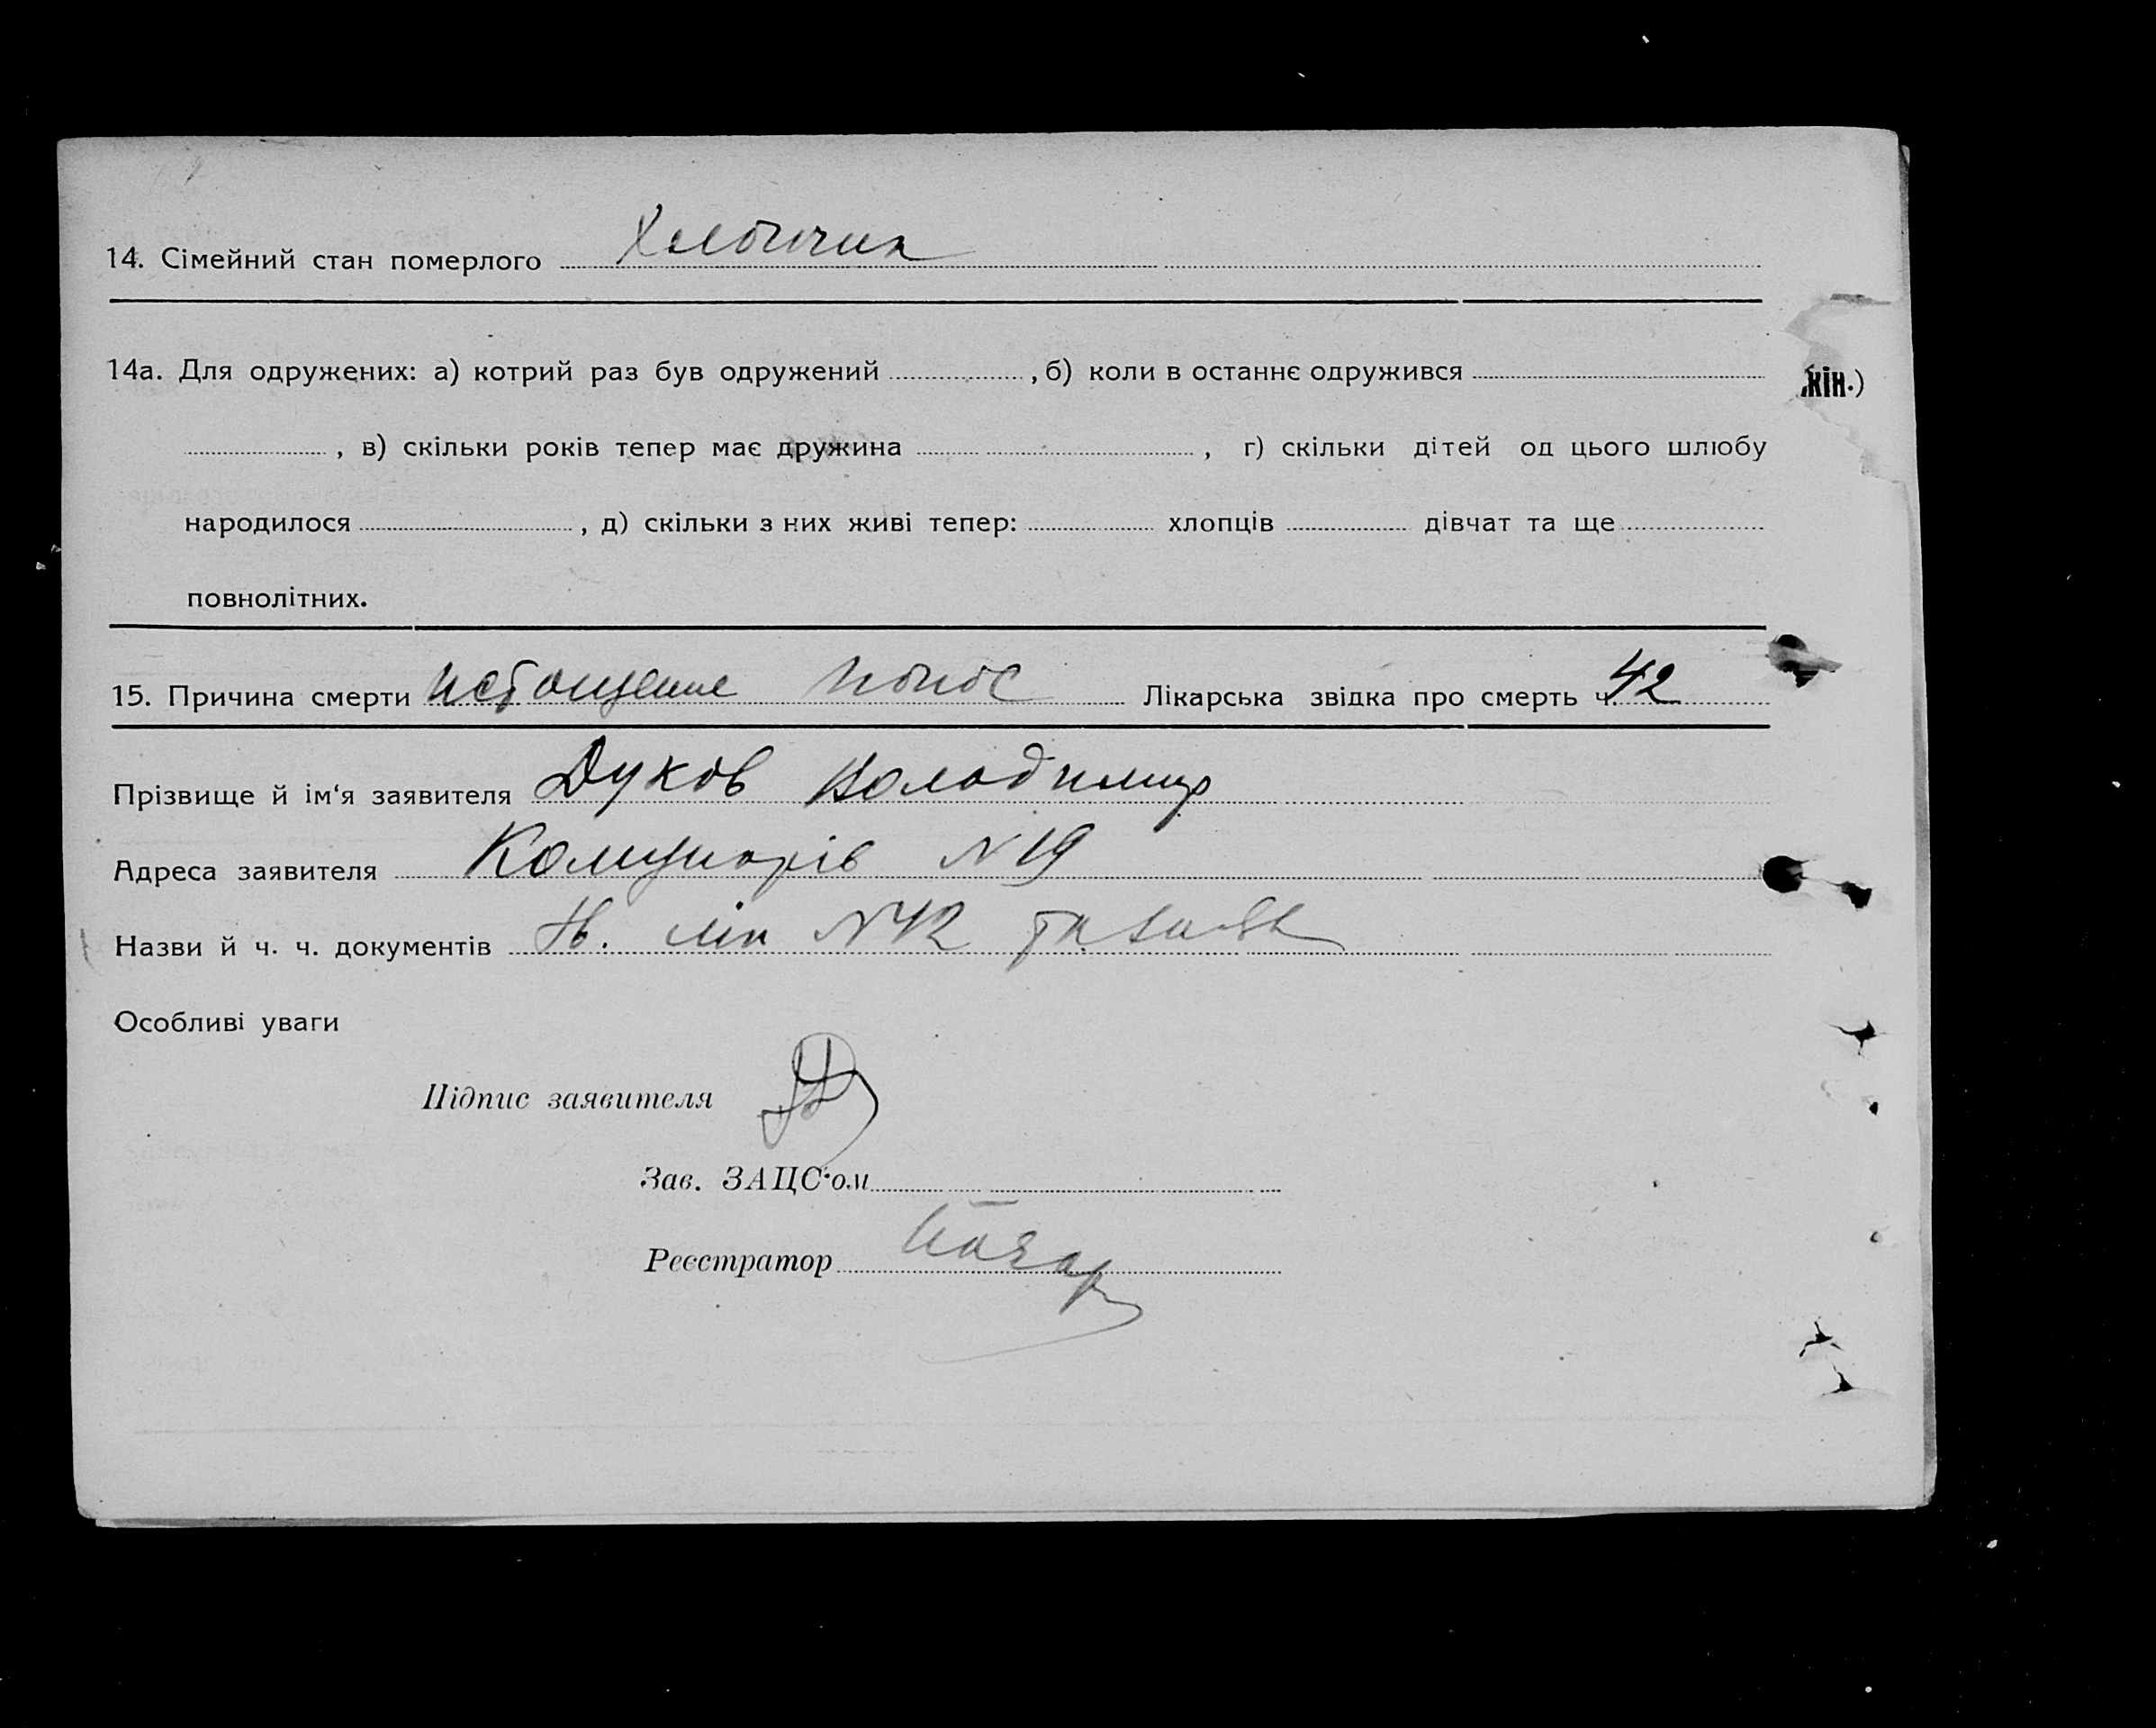 14. Сімейний стан померлого Хлопчик
14а. Для одружених: а) котрий раз був одружений , б) коли в останнє одружився
жін.)
, в) скільки років тепер має дружина , г) скільки дітей од цього шлюбу
народилося , д) скільки з них живі тепер: хлопців дівчат та ще
повнолітних.
15. Причина смерти истощение понос Лікарська звідка про смерть ч. 42
Прізвище й ім'я заявителя Дуков Володимир
Адреса заявителя Комунарів N 19
Назви й ч. ч. документів лік N 42 та
Особливі уваги
Підпис заявителя
Зав. ЗАЦС'ом
Реєстратор